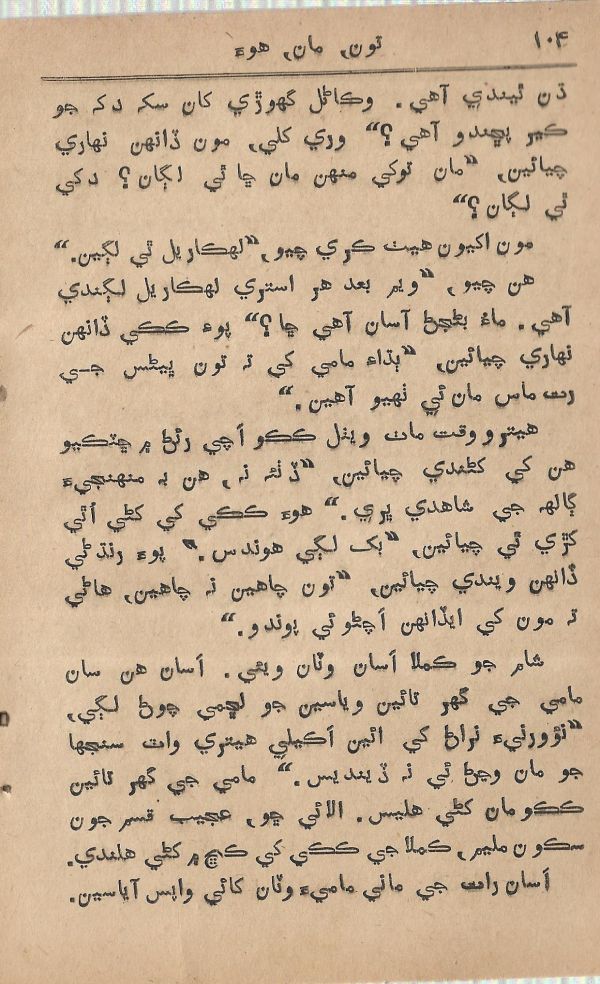 ۱۰۴ تون، مان، هوءِ
ڌن ٿيندي آهي. وڪاڻل گهوڙي کان سکہ دکہ جو
ڪير پڇندو آهي؟“ وري کلي، مون ڏانهن نهاري
چيائين، ”مان توکي منهن مان ڇا ٿي لڳان؟ دکي
ٿي لڳان؟“
مون اکيون هيٺ ڪري چيو، ”لهڪاريل ٿي لڳين.“
هن چيو، ”ويم بعد هر استري لهڪاريل لڳندي
آهي. ماءُ بڻجڻ آسان آهي ڇا؟“ پوءِ ڪڪي ڏانهن
نهاري چيائين، ”ٻڌاءِ مامي کي تہ تون ڀيڻس جي
رت ماس مان ئي ٺهيو آهين.“
هيترو وقت مات ويٺل ڪڪو اَچي رئڻ ۾ ڇٽڪيو
هن کي کڻندي چيائين، ”ڏٺئہ نہ، هن بہ منهنجيءَ
ڳالهہ جي شاهدي ڀري.“ هوءَ ڪڪي کي کڻي اُٿي
کڙي ٿي چيائين، ”بک لڳي هوندس.“ پوءِ رنڌڻي
ڏانهن ويندي چيائين، ”تون چاهين نہ چاهين، هاڻي
تہ مون کي ايڏانهن اَچڻوئي پوندو.“
شام جو ڪملا اَسان وٽان ويئي. اَسان هن سان
مامي جي گهر تائين وياسين جو لڇمي چوڻ لڳي،
جو مان وڃڻ ئي نہ ڏينديس.“ مامي جي گهر تائين
ڪڪو مان کڻي هليس. الائي ڇو، عجيب قسم جون
سڪون مليم، ڪملا جي ڪڪي کي ڪڇ ۾ کڻي هلندي.
اَسان رات جي ماني ماميءَ وٽان کائي واپس آياسين.